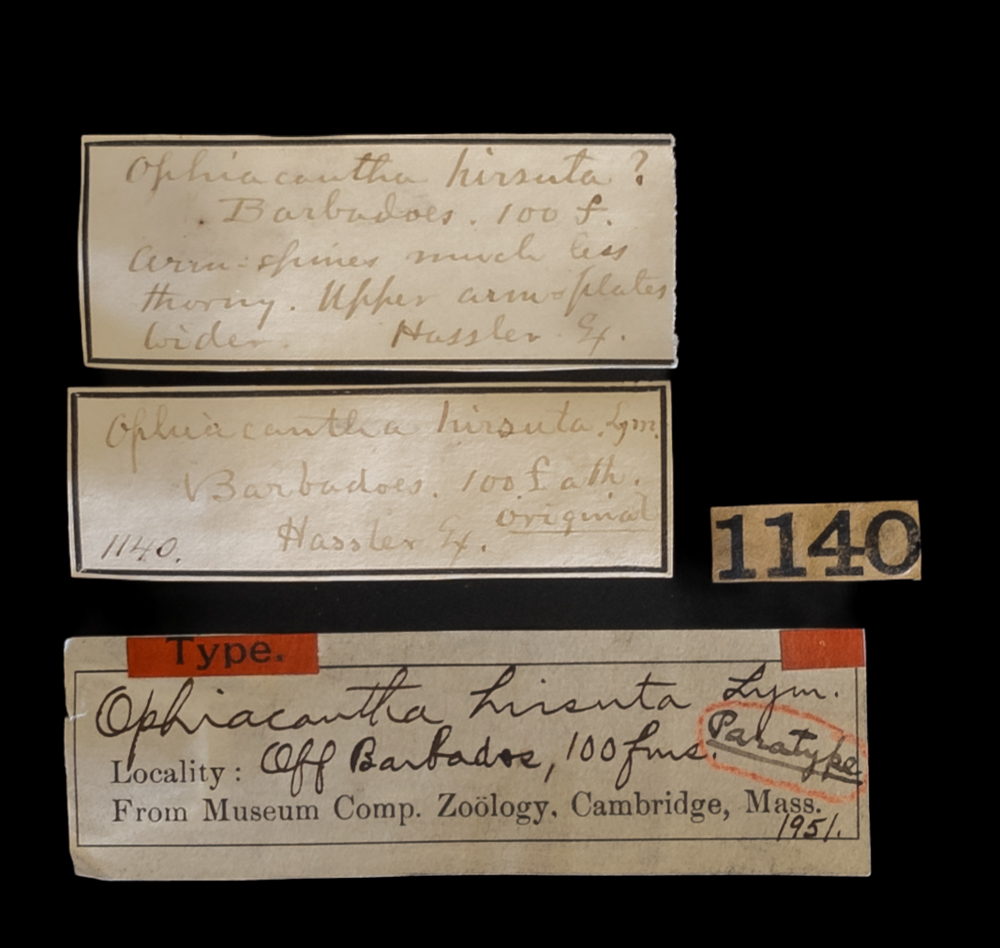 Ophiacantha hirsuta ?
Barbadoes. 100 f.
Arm-spines much less
thorny. Upper arm-plates
wider. Hassler Ex.
Ophiacantha hirsuta. Lym.
Barbadoes. 100 fath.
original
1140. Hassler Ex.
1140
Type.
Ophiacantha hirsuta Lym.
Paratype
Locality: Off Barbados, 100 fms.
From Museum Comp. Zoölogy, Cambridge, Mass.
1951.